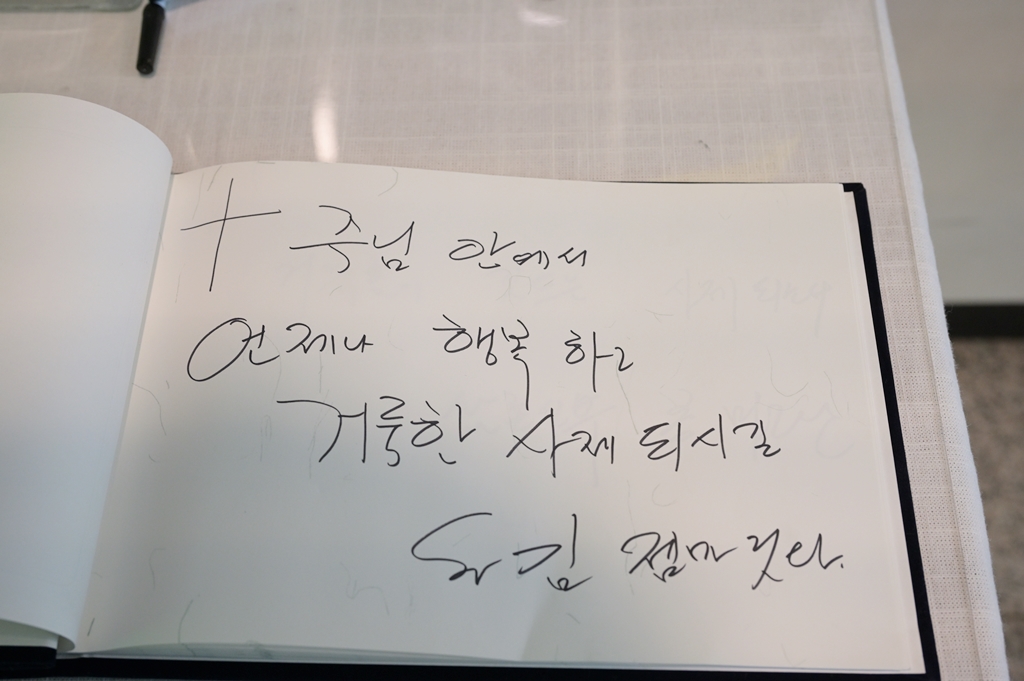 주님 안에서
언제나 행복하고
거룩한 사제 되시길
Sr 김 젬마 릿다.